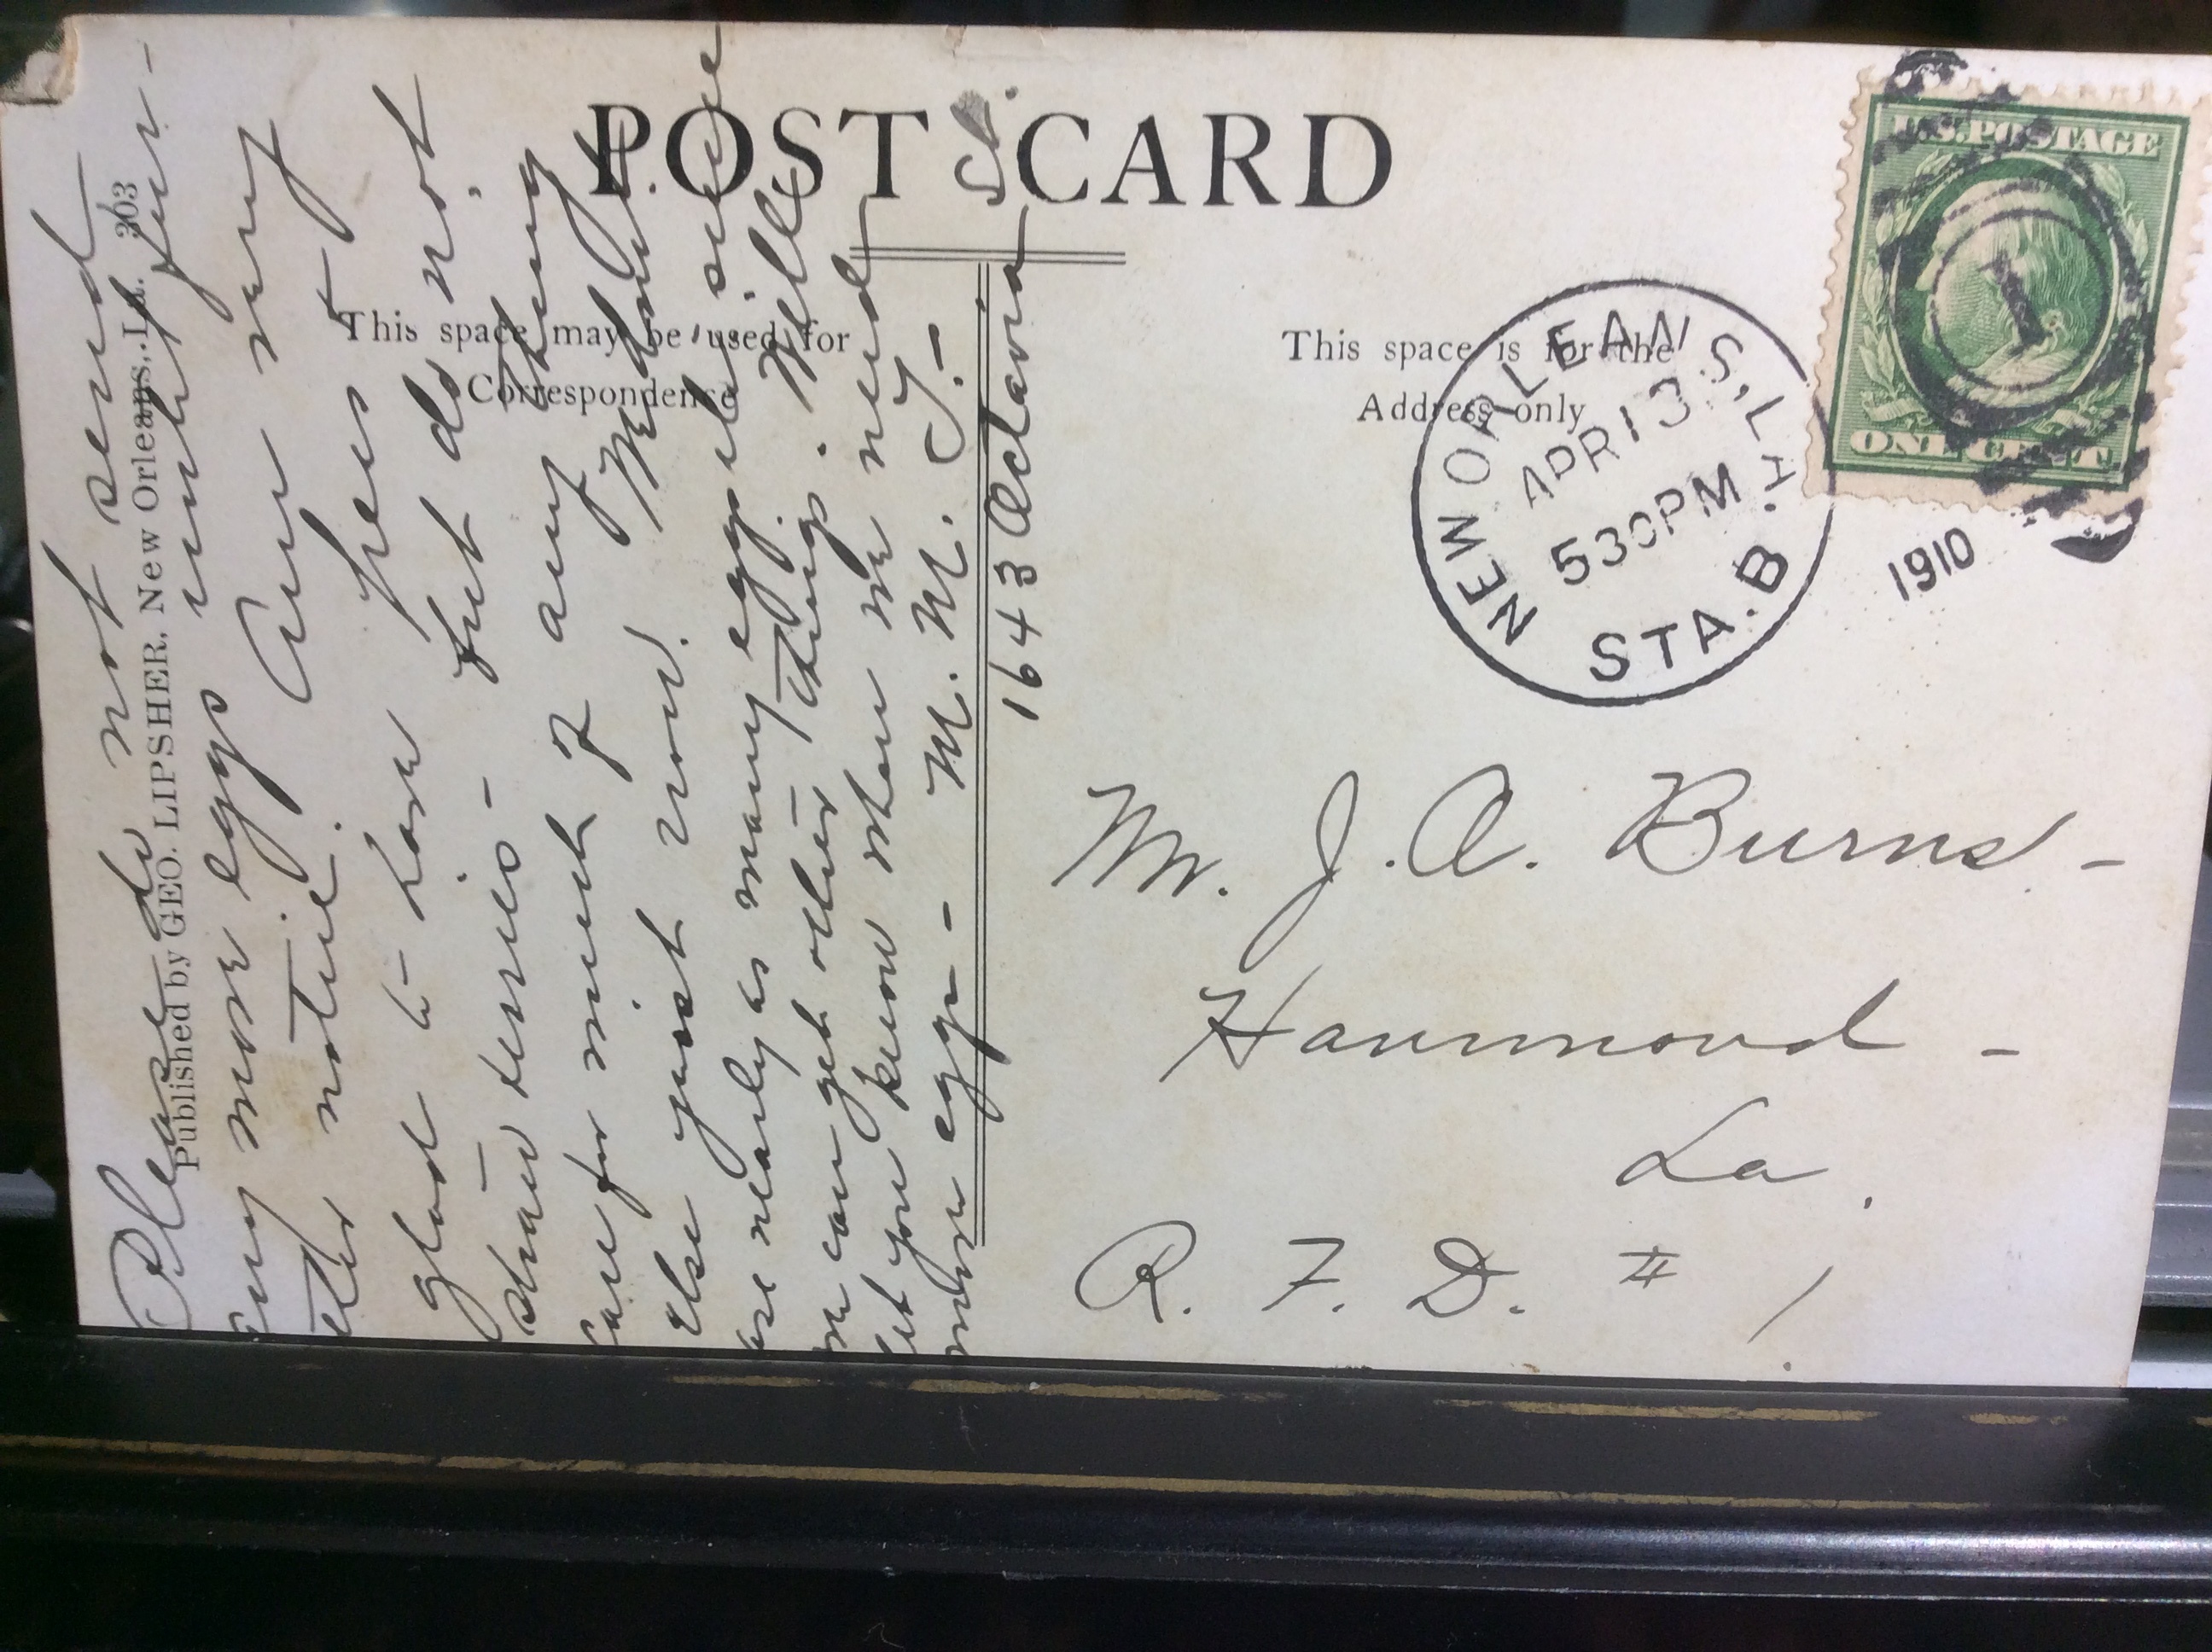 POST CARD
This space may be used for
Correspondence
This space is for the
Address only
Published by GEO. LIPSHER, New Orleans, La. 303
U.S. POSTAGE
ONE CENT
1
NEW ORLEANS, LA.
APR 13
530PM
STA. B.
1910
Please do not send
any more eggs until fur-
ther notice. Am very
glad to have peas &
straw berries - but do not
care for much of any thing
else just now. Wednesd.
are nearly as many eggs
we can get other things. Will
let you know when we need
more eggs - M. M. J. -
1643 Octavia St.
Mr. J. A. Burns -
Hammond -
La.
R. F. D. # 1